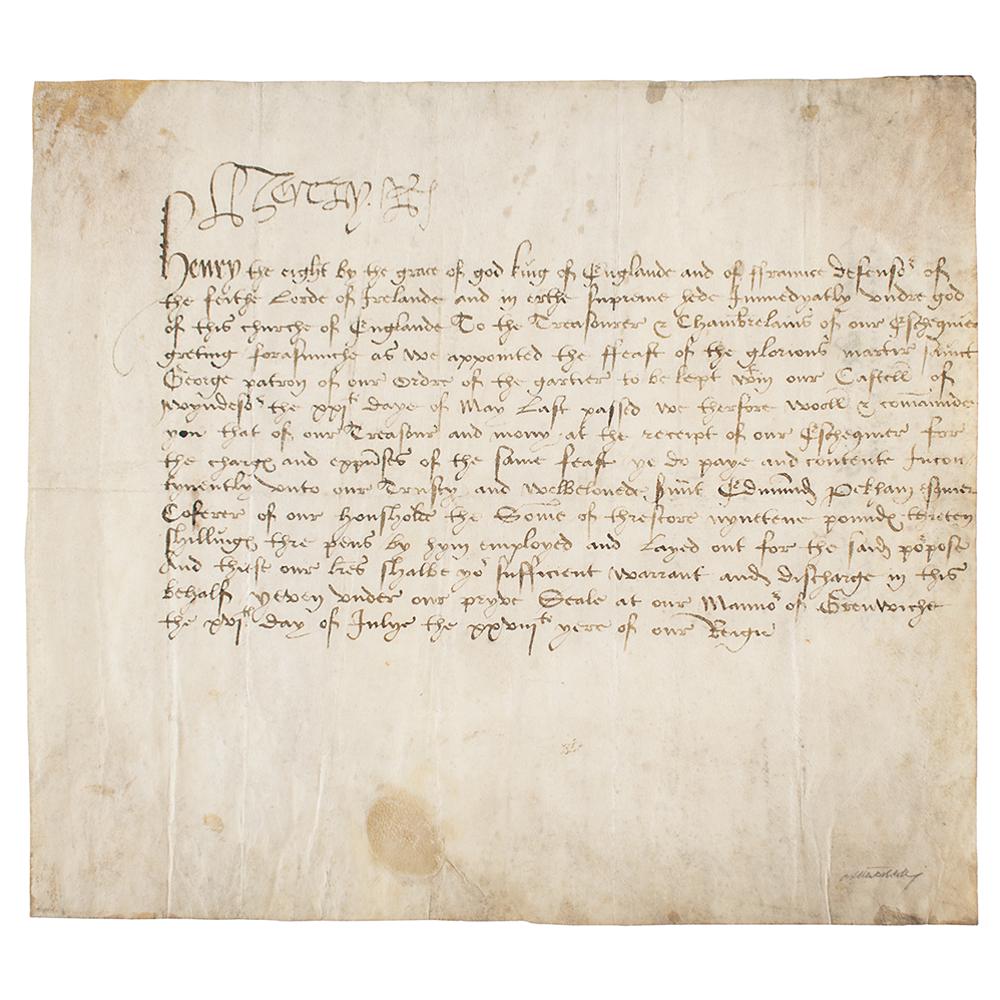 Henry R
Henry the eight by the grace of god king of Englande and of ffraunce defensor of
the feithe Lorde of Irelande and in erthe supreme hede Immedyatly vndre god
of this churche of Englande To the Treasourer & Chambrelains of our Eschequier
greting forasmuche as we appointed the ffeast of the glorious martir sainct
George patron of our Ordre of the gartier to be kept wtin our Castell of
wyndesor the xxith daye of May last passed we therfore woll & commaunde
you that of our Treasour and mony at the receipt of our Eschequier for
the charges and expenses of the same feast ye do paye and contente Incon
tynently vnto our Trusty and welbeloued sruunt Edmund Pekham esquier
Coferer of our housholde the Some of threscore nyntene poundes threten
shillinges thre pens by hym employed and layed out for the said porpose
And thiese our lres shalbe yor sufficient warrant and discharge in this
behalf yeven vnder our pryve Seale at our Mannor of Grenwiche
the xvith day of Iulye the xxviiith yere of our Reigne